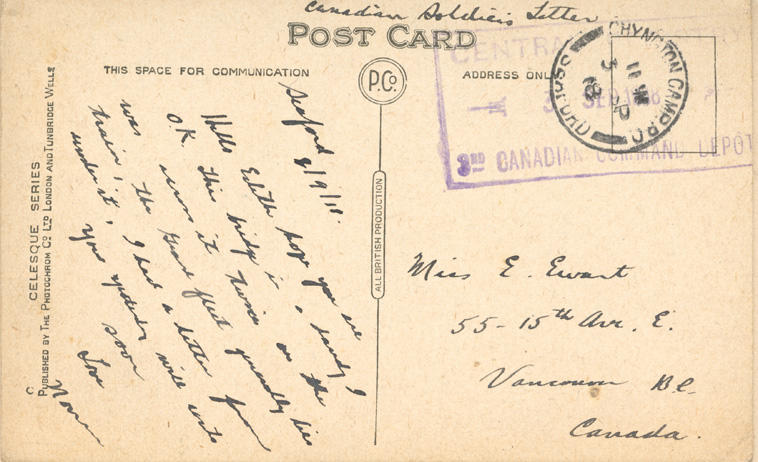 Canadian Soldiers Letter
POST CARD
THIS SPACE FOR COMMUNICATION
P.Co.
ADDRESS ONL
CHYNGTON CAMP.P.O.
SEAFORD
3 SP
18
CENTRA
3 SEP 18
3RD CANADIAN COMMAND DEPÔT
CELESQUE SERIES
PUBLISHED BY THE PHOTOCHROM CO. LTD LONDON AND TUNBRIDGE WELLS
ALL BRITISH PRODUCTION
Seaford
3/9/18.
Hello Edith hope you are
O.K. This bridge is a dandy I
was it twice on the
train, the Grand fleet generally lies
under it. I had a letter from
you yesterday will write
soon
Love
Norm
Miss E. Ewart
55-15th Ave. E.
Vancouver B.C.
Canada.